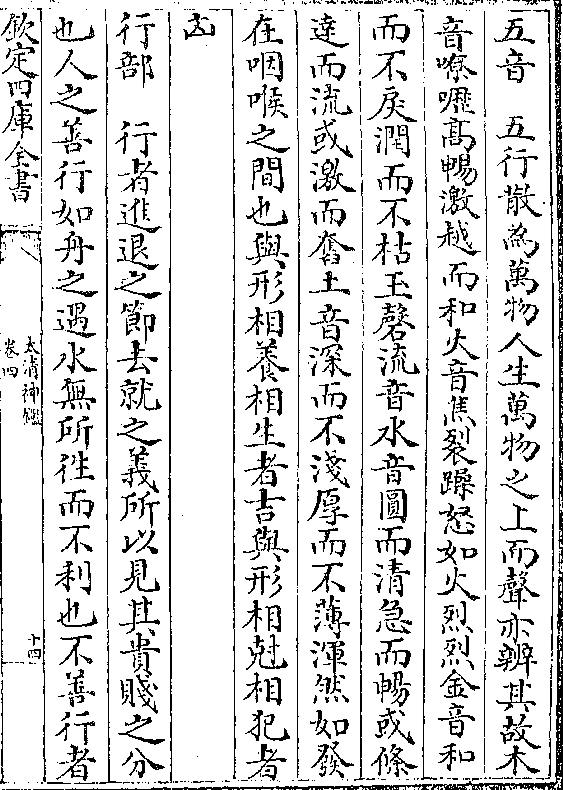 五音　五行散為萬物人生萬物之上而聲亦辨其故木
音嘹嚦高暢激越而和火音焦裂躁怒如火烈烈金音和
而不戾潤而不枯玉磬流音水音圓而清急而暢或條
達而流或激而奮土音深而不淺厚而不薄渾然如發
在咽喉之間也與形相養相生者吉與形相尅相犯者
凶
行部　行者進退之節去就之義所以見其貴賤之分
也人之善行如舟之遇水無所徃而不利也不善行者
欽定四庫全書
太清神鑑
卷四
十四